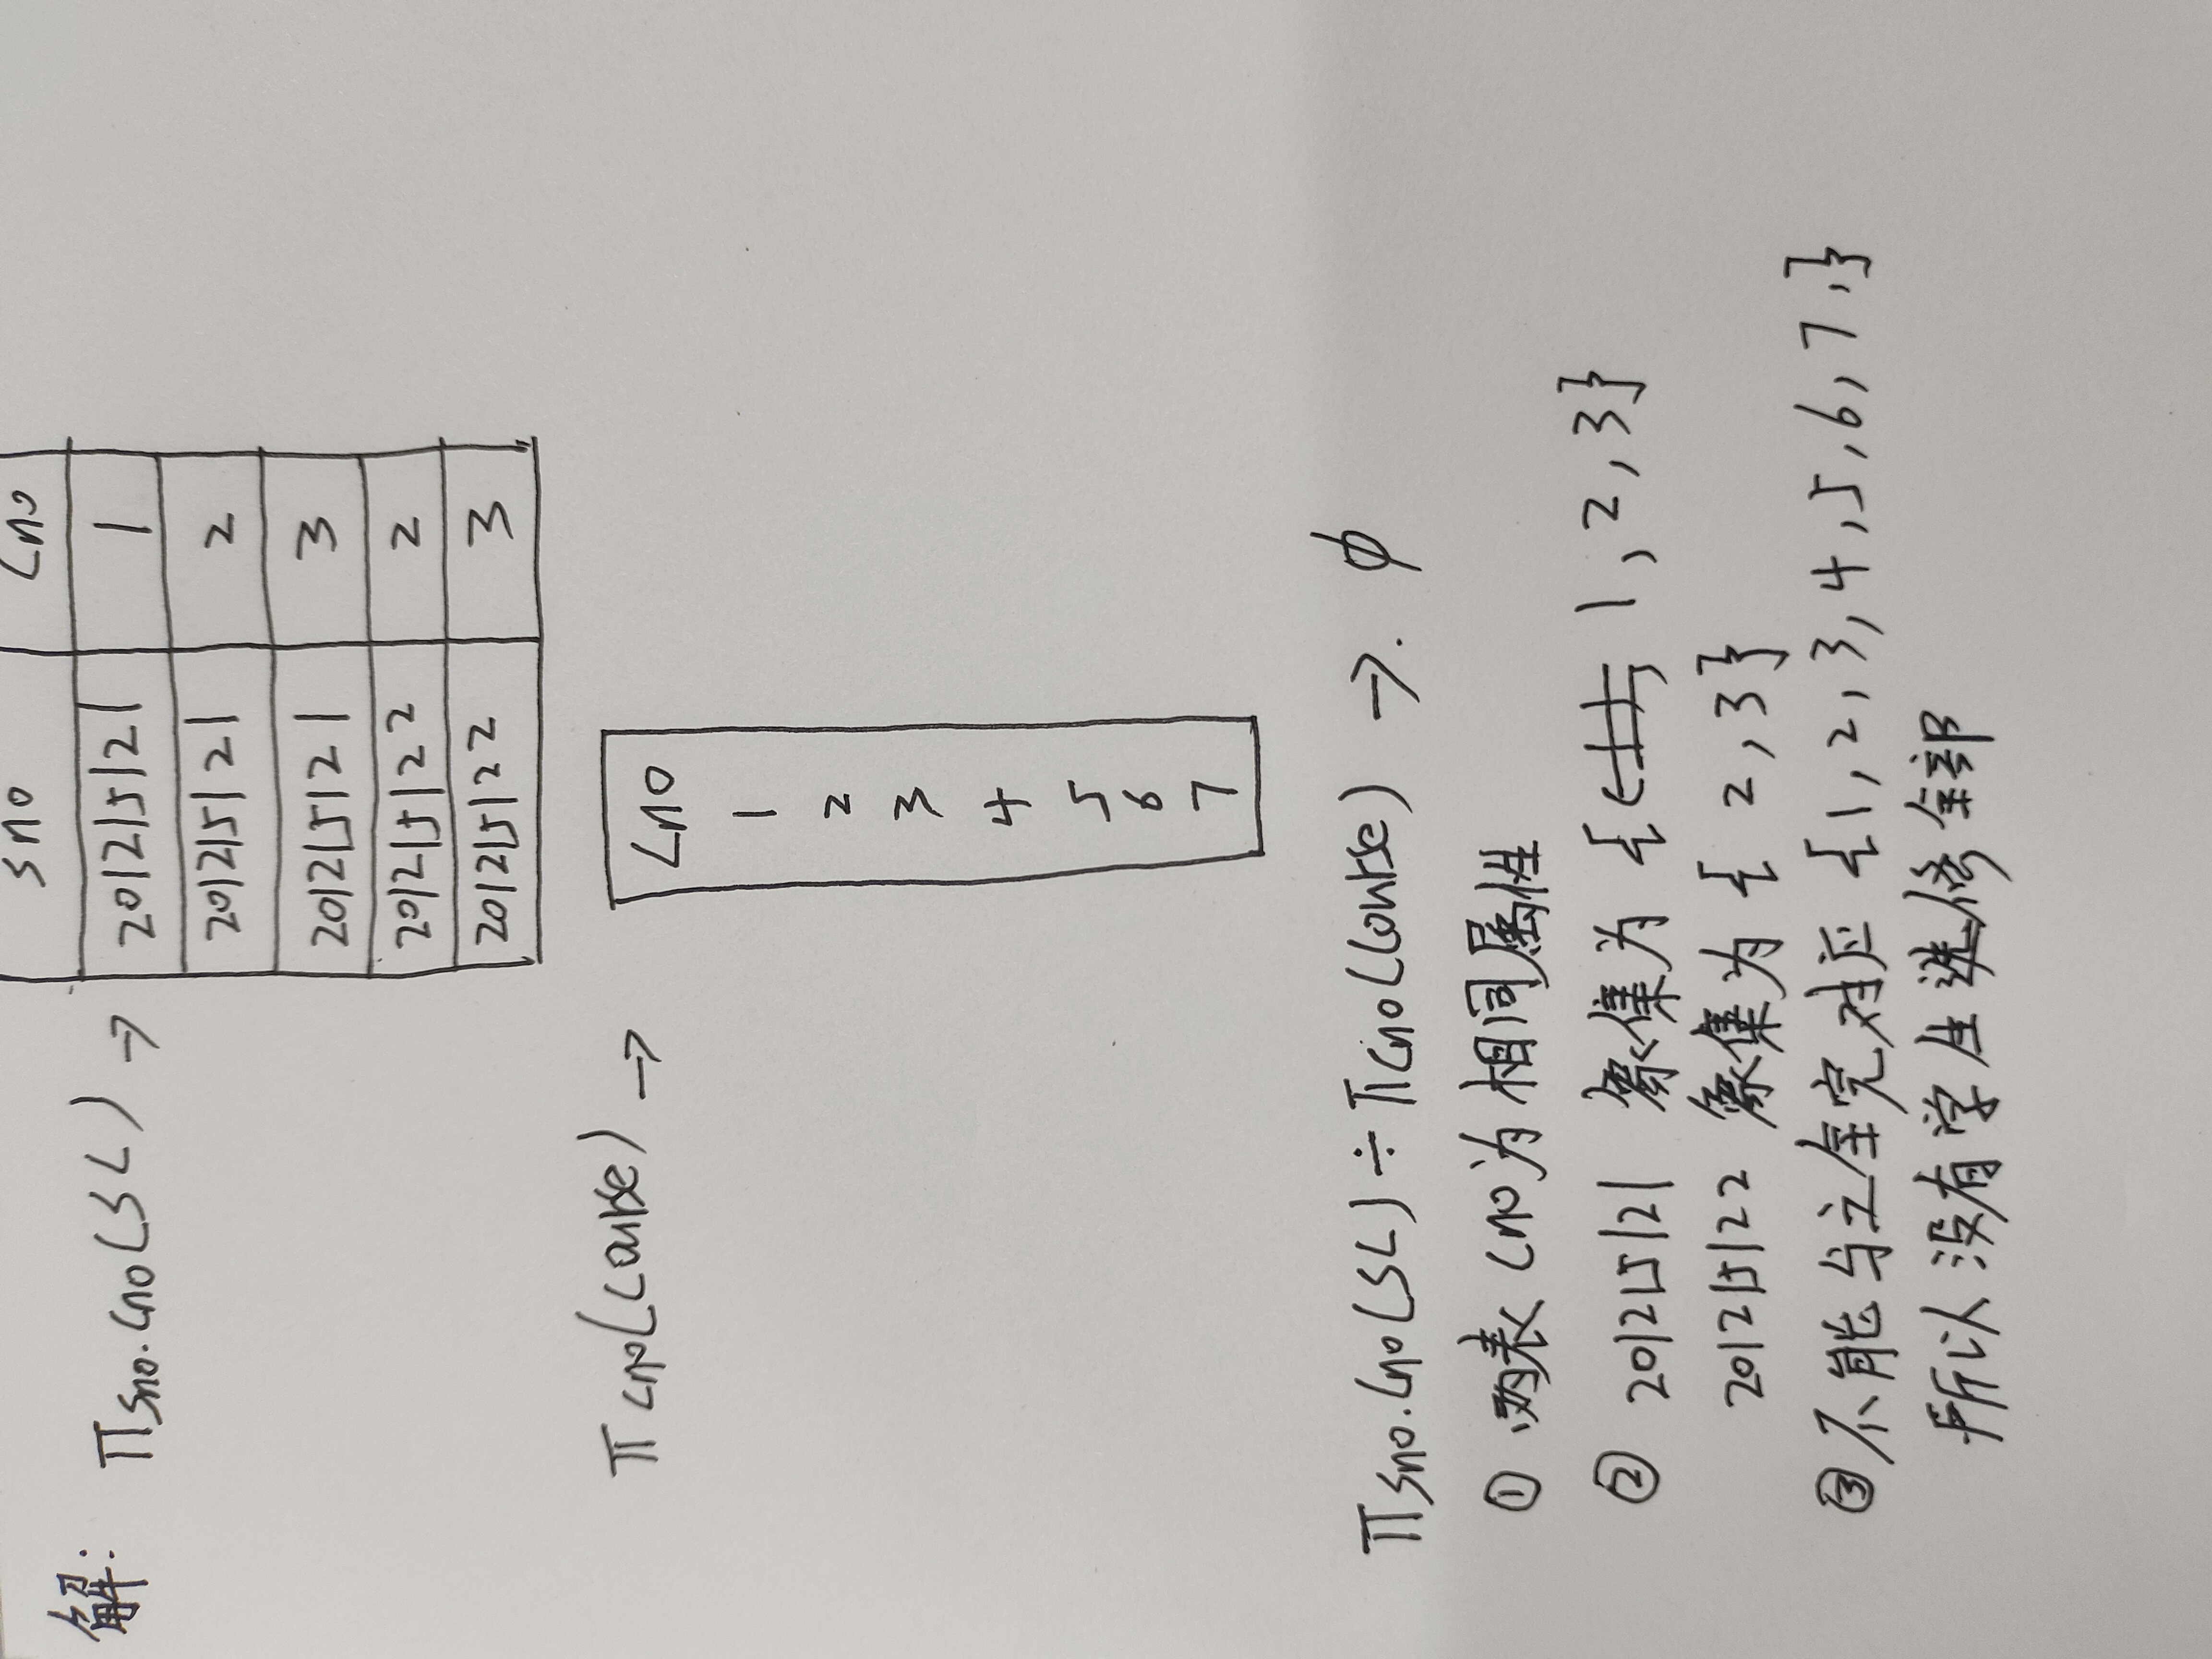 解: Πsno.cno(SC) →
sno cno
201215121 1
201215121 2
201215121 3
201215122 2
201215122 3
Πcno(course) →
cno
1
2
3
4
5
6
7
Πsno.cno(SC) ÷ Πcno(course) →. φ
① 两表 cno为相同属性
② 201215121 象集为 { 1, 2, 3}
201215122 象集为 { 2, 3}
③ 不能与之全完对应 {1, 2, 3, 4, 5, 6, 7,}
所以没有学生选修全部